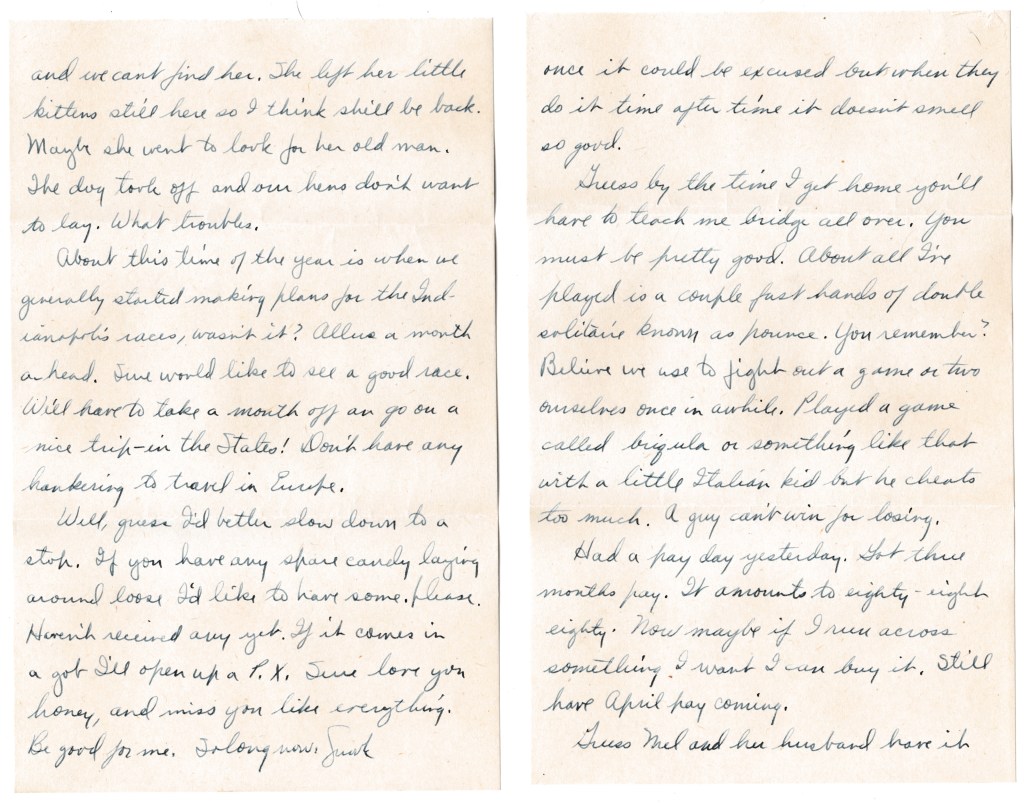 and we cant find her. She left her little
kittens still here so I think she'll be back.
Maybe she went to look for her old man.
The dog took off and our hens don't want
to lay. What troubles.
About this time of the year is when we
generally started making plans for the Ind-
ianapolis races, wasn't it? Allus a month
a-head. Sure would like to see a good race.
We'll have to take a month off an go on a
nice trip-in the States! Don't have any
hankering to travel in Europe.
Well, guess I'd better slow down to a
stop. If you have any spare candy laying
around loose I'd like to have some. please.
Haven't received any yet. If it comes in
a got I'll open up a P.X. Sure love you
honey, and miss you like everything.
Be good for me. So long now.
once it could be excused but when they
do it time after time it doesn't smell
so good.
Guess by the time I get home you'll
have to teach me bridge all over. You
must be pretty good. About all I've
played is a couple fast hands of double
solitaire known as pounce. You remember?
Believe we use to fight out a game or two
ourselves once in awhile. Played a game
called or something like that
with a little Italian kid but he cheats
too much. A guy can't win for losing.
Had a pay day yesterday. Got three
months pay. It amounts to eighty-eight
eighty. Now maybe if I run across
something I want I can buy it. Still
have April pay coming.
Guess Mel and her husband have it